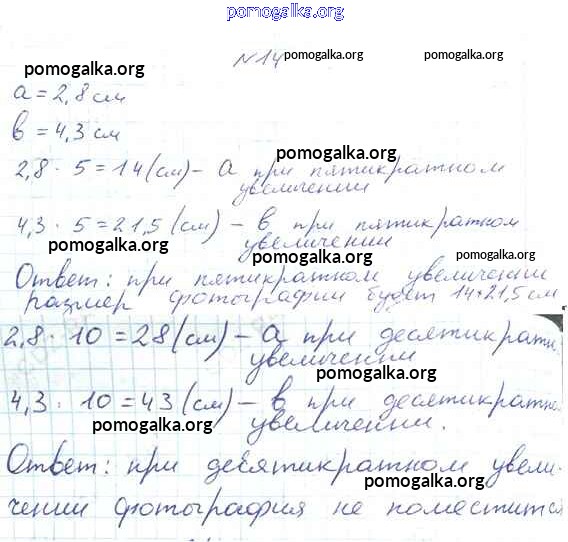 pomogalka.org
№14 pomogalka.org pomogalka.org
pomogalka.org
a = 2,8 см
в = 4,3 см
pomogalka.org
2,8 · 5 = 14 (см) – а при пятикратном
увеличении
4,3 · 5 = 21,5 (см) – в при пятикратном
увеличении
pomogalka.org pomogalka.org
Ответ: при пятикратном увеличении
размер фотографии будет 14×21,5 см
2,8 · 10 = 28 (см) – а при десятикратн
увеличении
pomogalka.org
4,3 · 10 = 43 (см) – в при десятикратно
увеличении.
pomogalka.org
Ответ: при десятикратном увели-
pomogalka.org
чении фотография не поместится